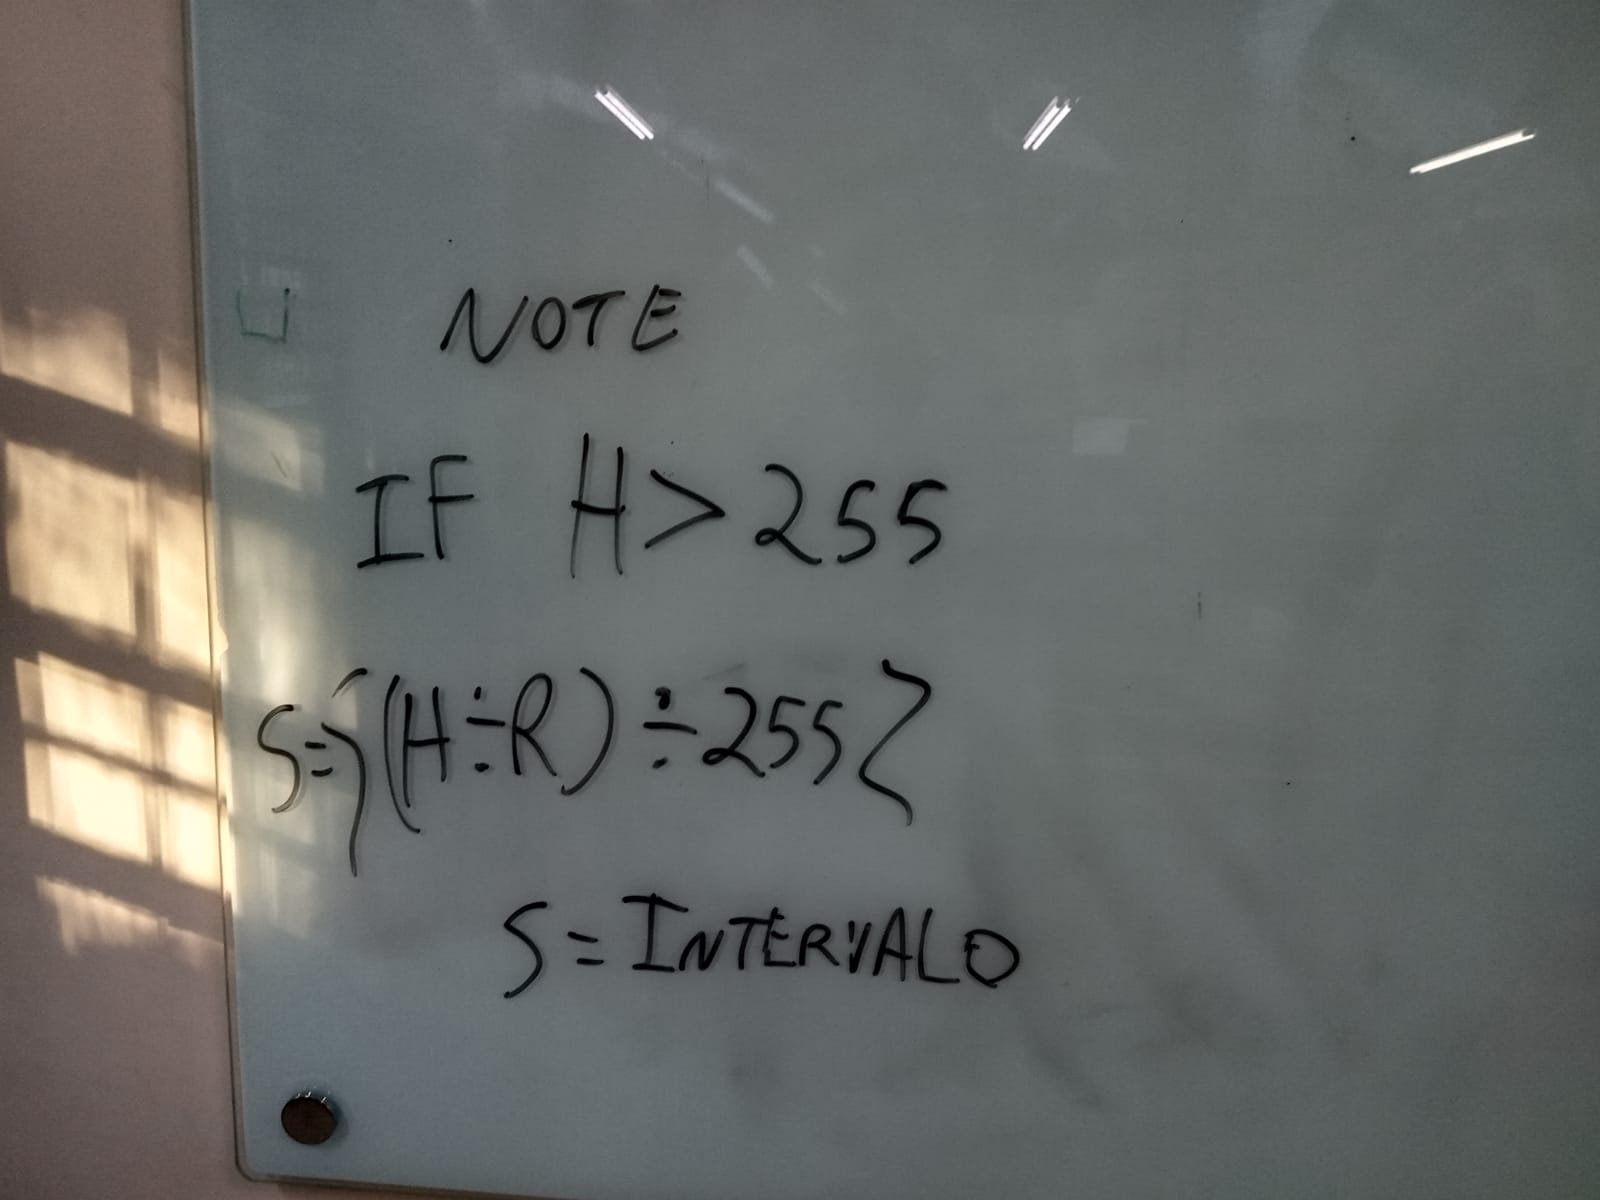 NOTE
IF H>255
S={(H÷R)÷255}
S=INTERVALO